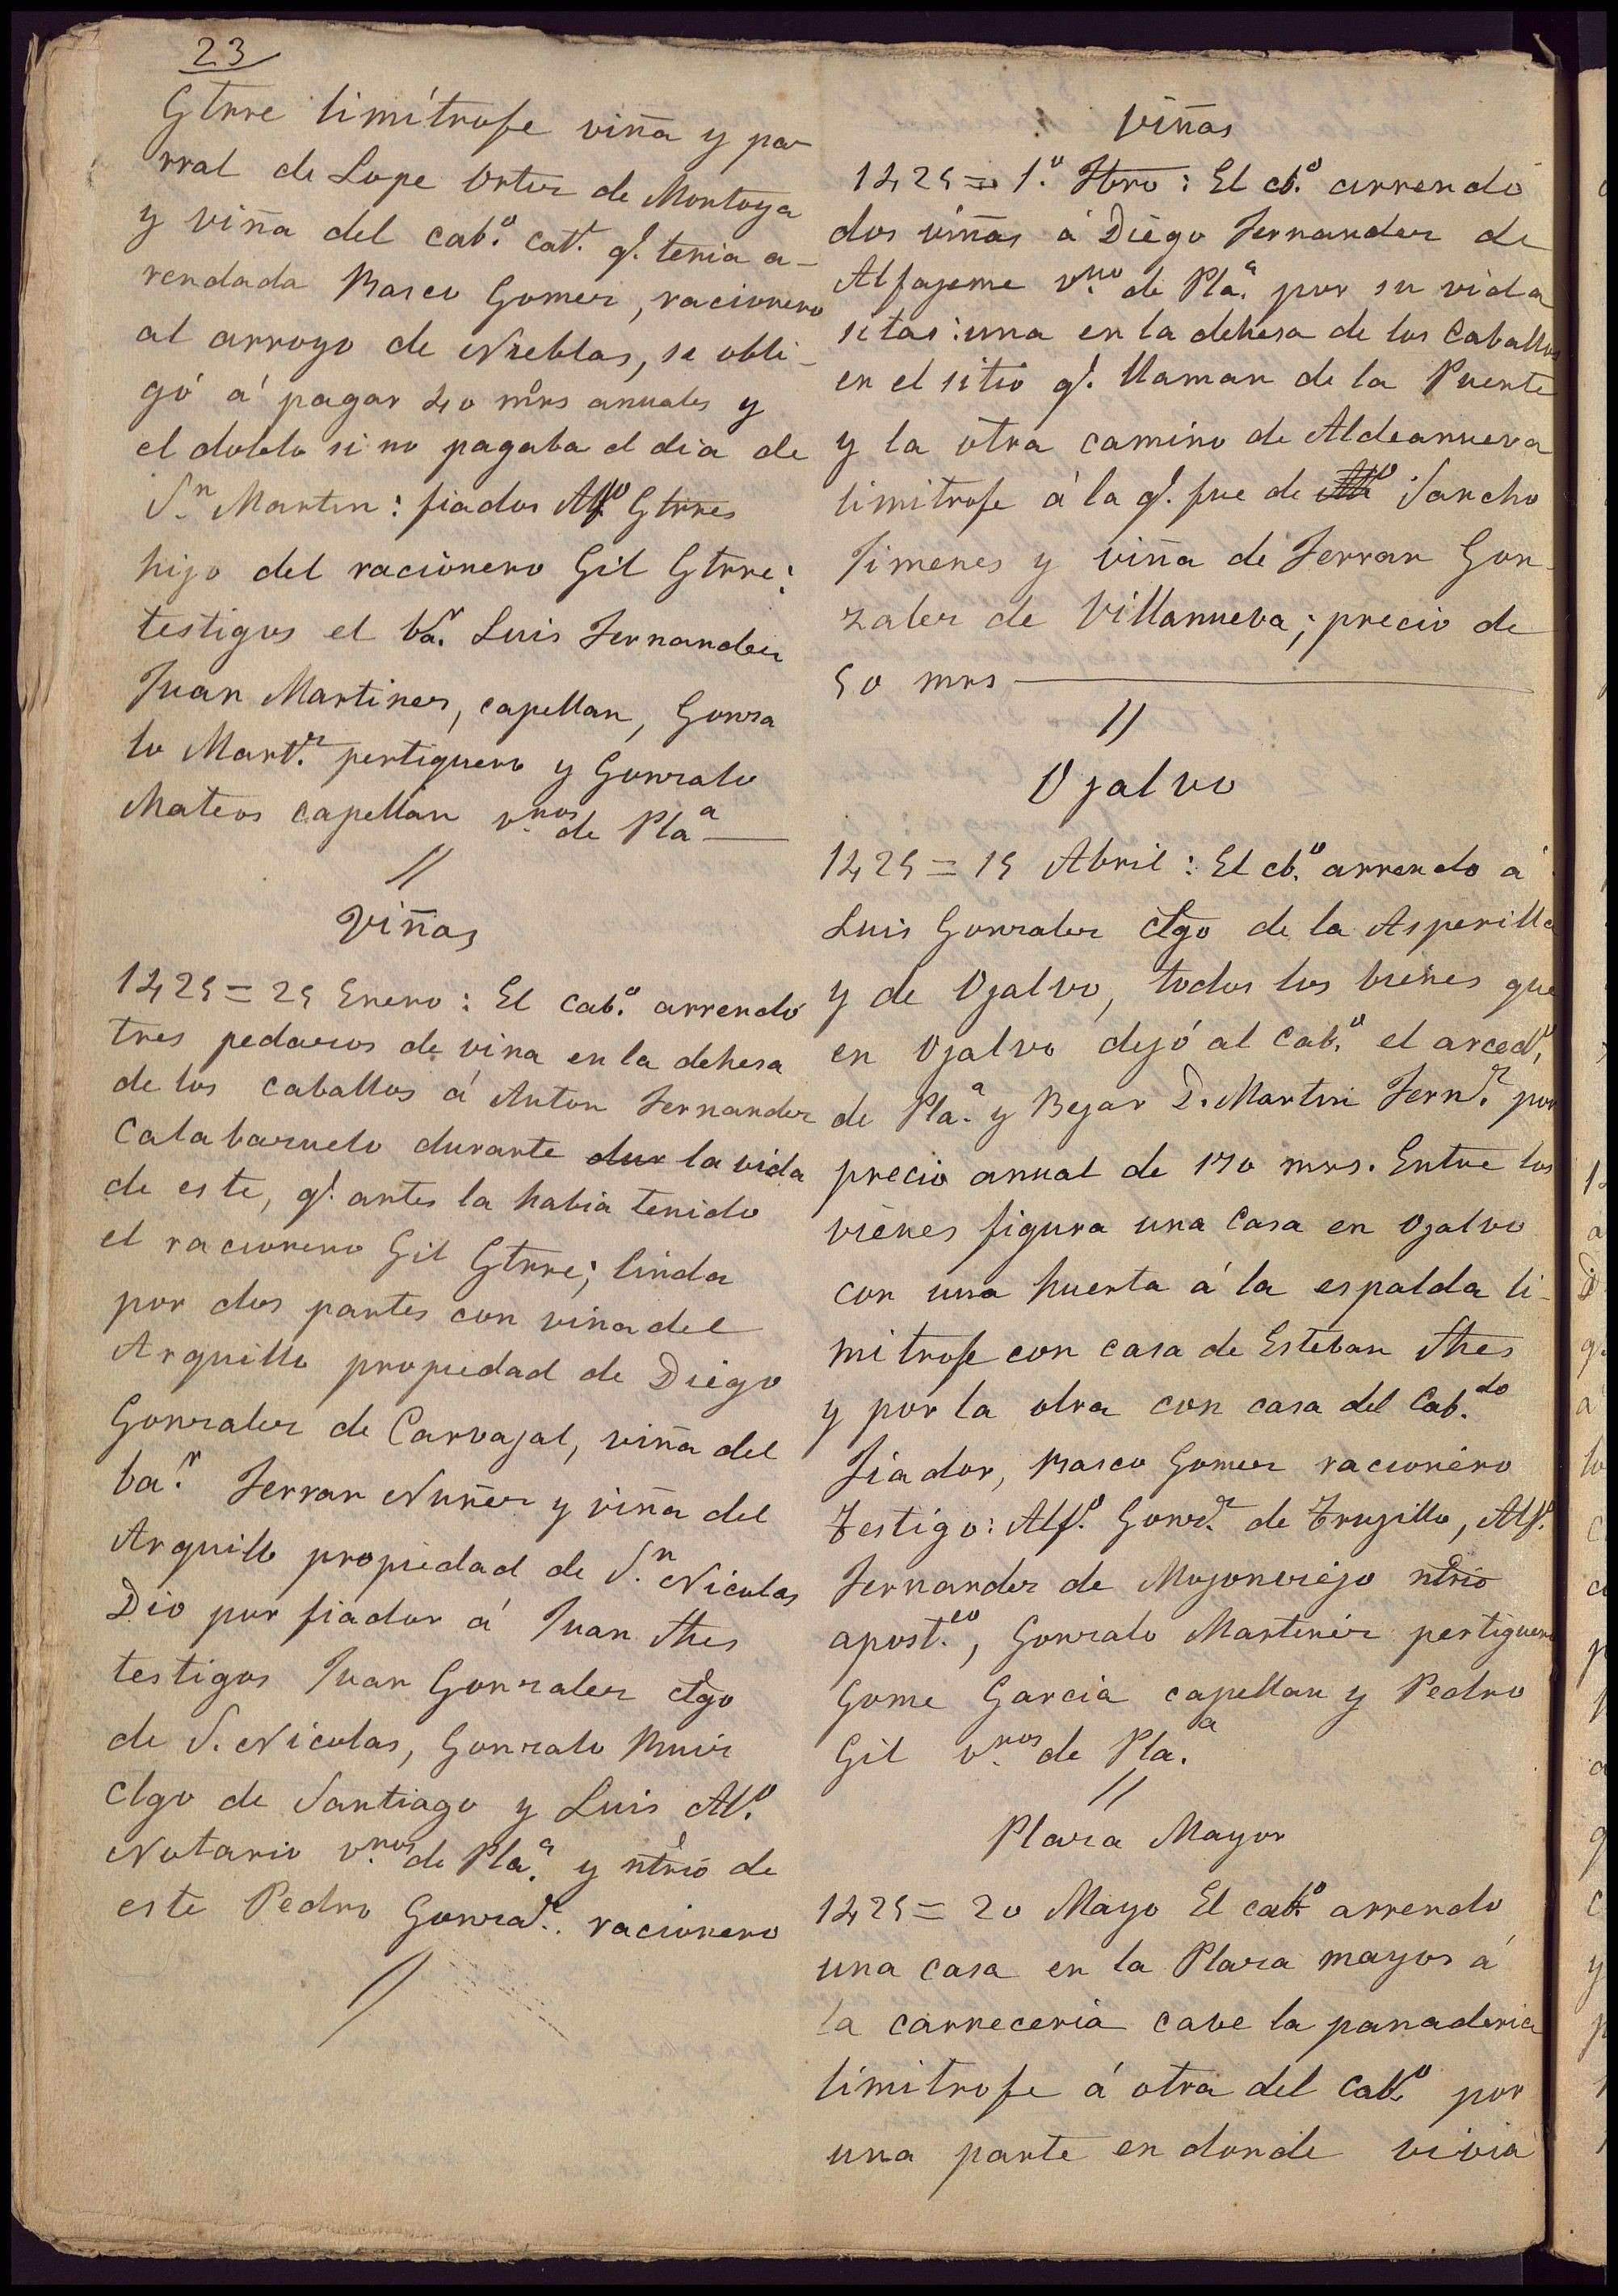 23
Gtrre limítrofe viña y pa-
rral de Lope Ortiz de Montoya
y viña del cab.º cat.l q.e tenia a-
rendada Blasco Gomez, racionero
al arroyo de Nieblas, se obli-
gó á pagar 40 mrs anuales y
el doble si no pagaba el dia de
S.n Martin: fiador Alfº Gtrres
hijo del racionero Gil Gtrre:
testigos el ba.r Luis Fernandez
Juan Martinez, capellan, Gonza
lo Mart.z pertiguero y Gonzalo
Mateos capellan v.nos de Pla.a
//
Viñas
1425 = 25 Enero: El cab.º arrendó
tres pedazos de viña en la dehesa
de los caballos á Anton Fernandez
Calabazuelo durante dur la vida
de este, q.e antes la habia tenido
el racionero Gil Gtrre; linda
por dos partes con viña del
Arquillo propiedad de Diego
Gonzalez de Carvajal, viña del
ba.r Ferran Nuñez y viña del
Arquillo propiedad de S.n Nicolas
Dio por fiador á Juan Shes
testigos Juan Gonzalez clgo
de S. Nicolas, Gonzalo Ruiz
clgo de Santiago y Luis Alº
Notario v.nos de Pla.a y ntrio de
este Pedro Gonza.z racionero
//
Viñas
1425 = 1.º Fbro: El cb.º arrendó
dos viñas á Diego Fernandez de
Alfajeme v.no de Pla.a por su vida
sitas: una en la dehesa de los Caballos
en el sitio q.e llaman de la Puente
y la otra camino de Aldeanueva
limitrofe á la q.e fue de Sancho
Jimenes y viña de Ferran Gon-
zalez de Villanueba; precio de
50 mrs
//
Ojalvo
1425 = 15 Abril: El cb.º arrendo á
Luis Gonzalez clgo de la Asperilla
y de Ojalvo, todos los bienes que
en Ojalvo dejó al Cab.º el arced.º
de Pla.a y Bejar D. Martin Fern.z por
precio anual de 170 mrs. Entre los
vienes figura una casa en Ojalvo
con una huerta á la espalda li-
mitrofe con casa de Esteban Shes
y por la otra con casa del Cab.do
Fiador, Blasco Gomez racionero
Testigo: Alf.º Gonz.z de Trujillo, Alf.º
Fernandez de Mojonviejo ntrio
apost.co, Gonzalo Martinez pertiguero
Gome Garcia capellan y Pedro
Gil v.nos de Pla.a
//
Plaza Mayor
1425 = 20 Mayo El cab.º arrendo
una casa en la Plaza mayor á
la carneceria cabe la panaderia
limitrofe á otra del cab.º por
una parte en donde vivia